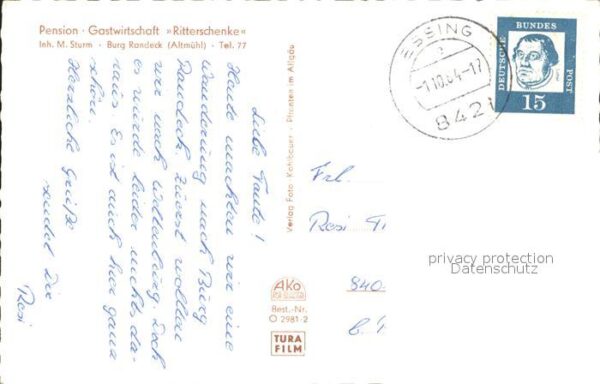 Pension · Gastwirtschaft »Ritterschenke«
Inh. M. Sturm · Burg Randeck (Altmühl) · Tel. 77
Liebe Tante!
Heute machten wir eine
Wanderung nach Burg
Randeck. Zuerst wollten
wir nach Weltenburg. Doch
es würde leider nicht da-
raus. Es ist auch hier ganz
schön.
Herzliche Grüße
sendet Dir
Rosi
Verlag Foto Kohlbauer · Pfronten im Allgäu
AKO
Best.-Nr.
O 2981-2
TURA
FILM
ESSING
a
-1.10.64-17
8421
DEUTSCHE
BUNDES
POST
15
Frl.
Resi
840
privacy protection
Datenschutz